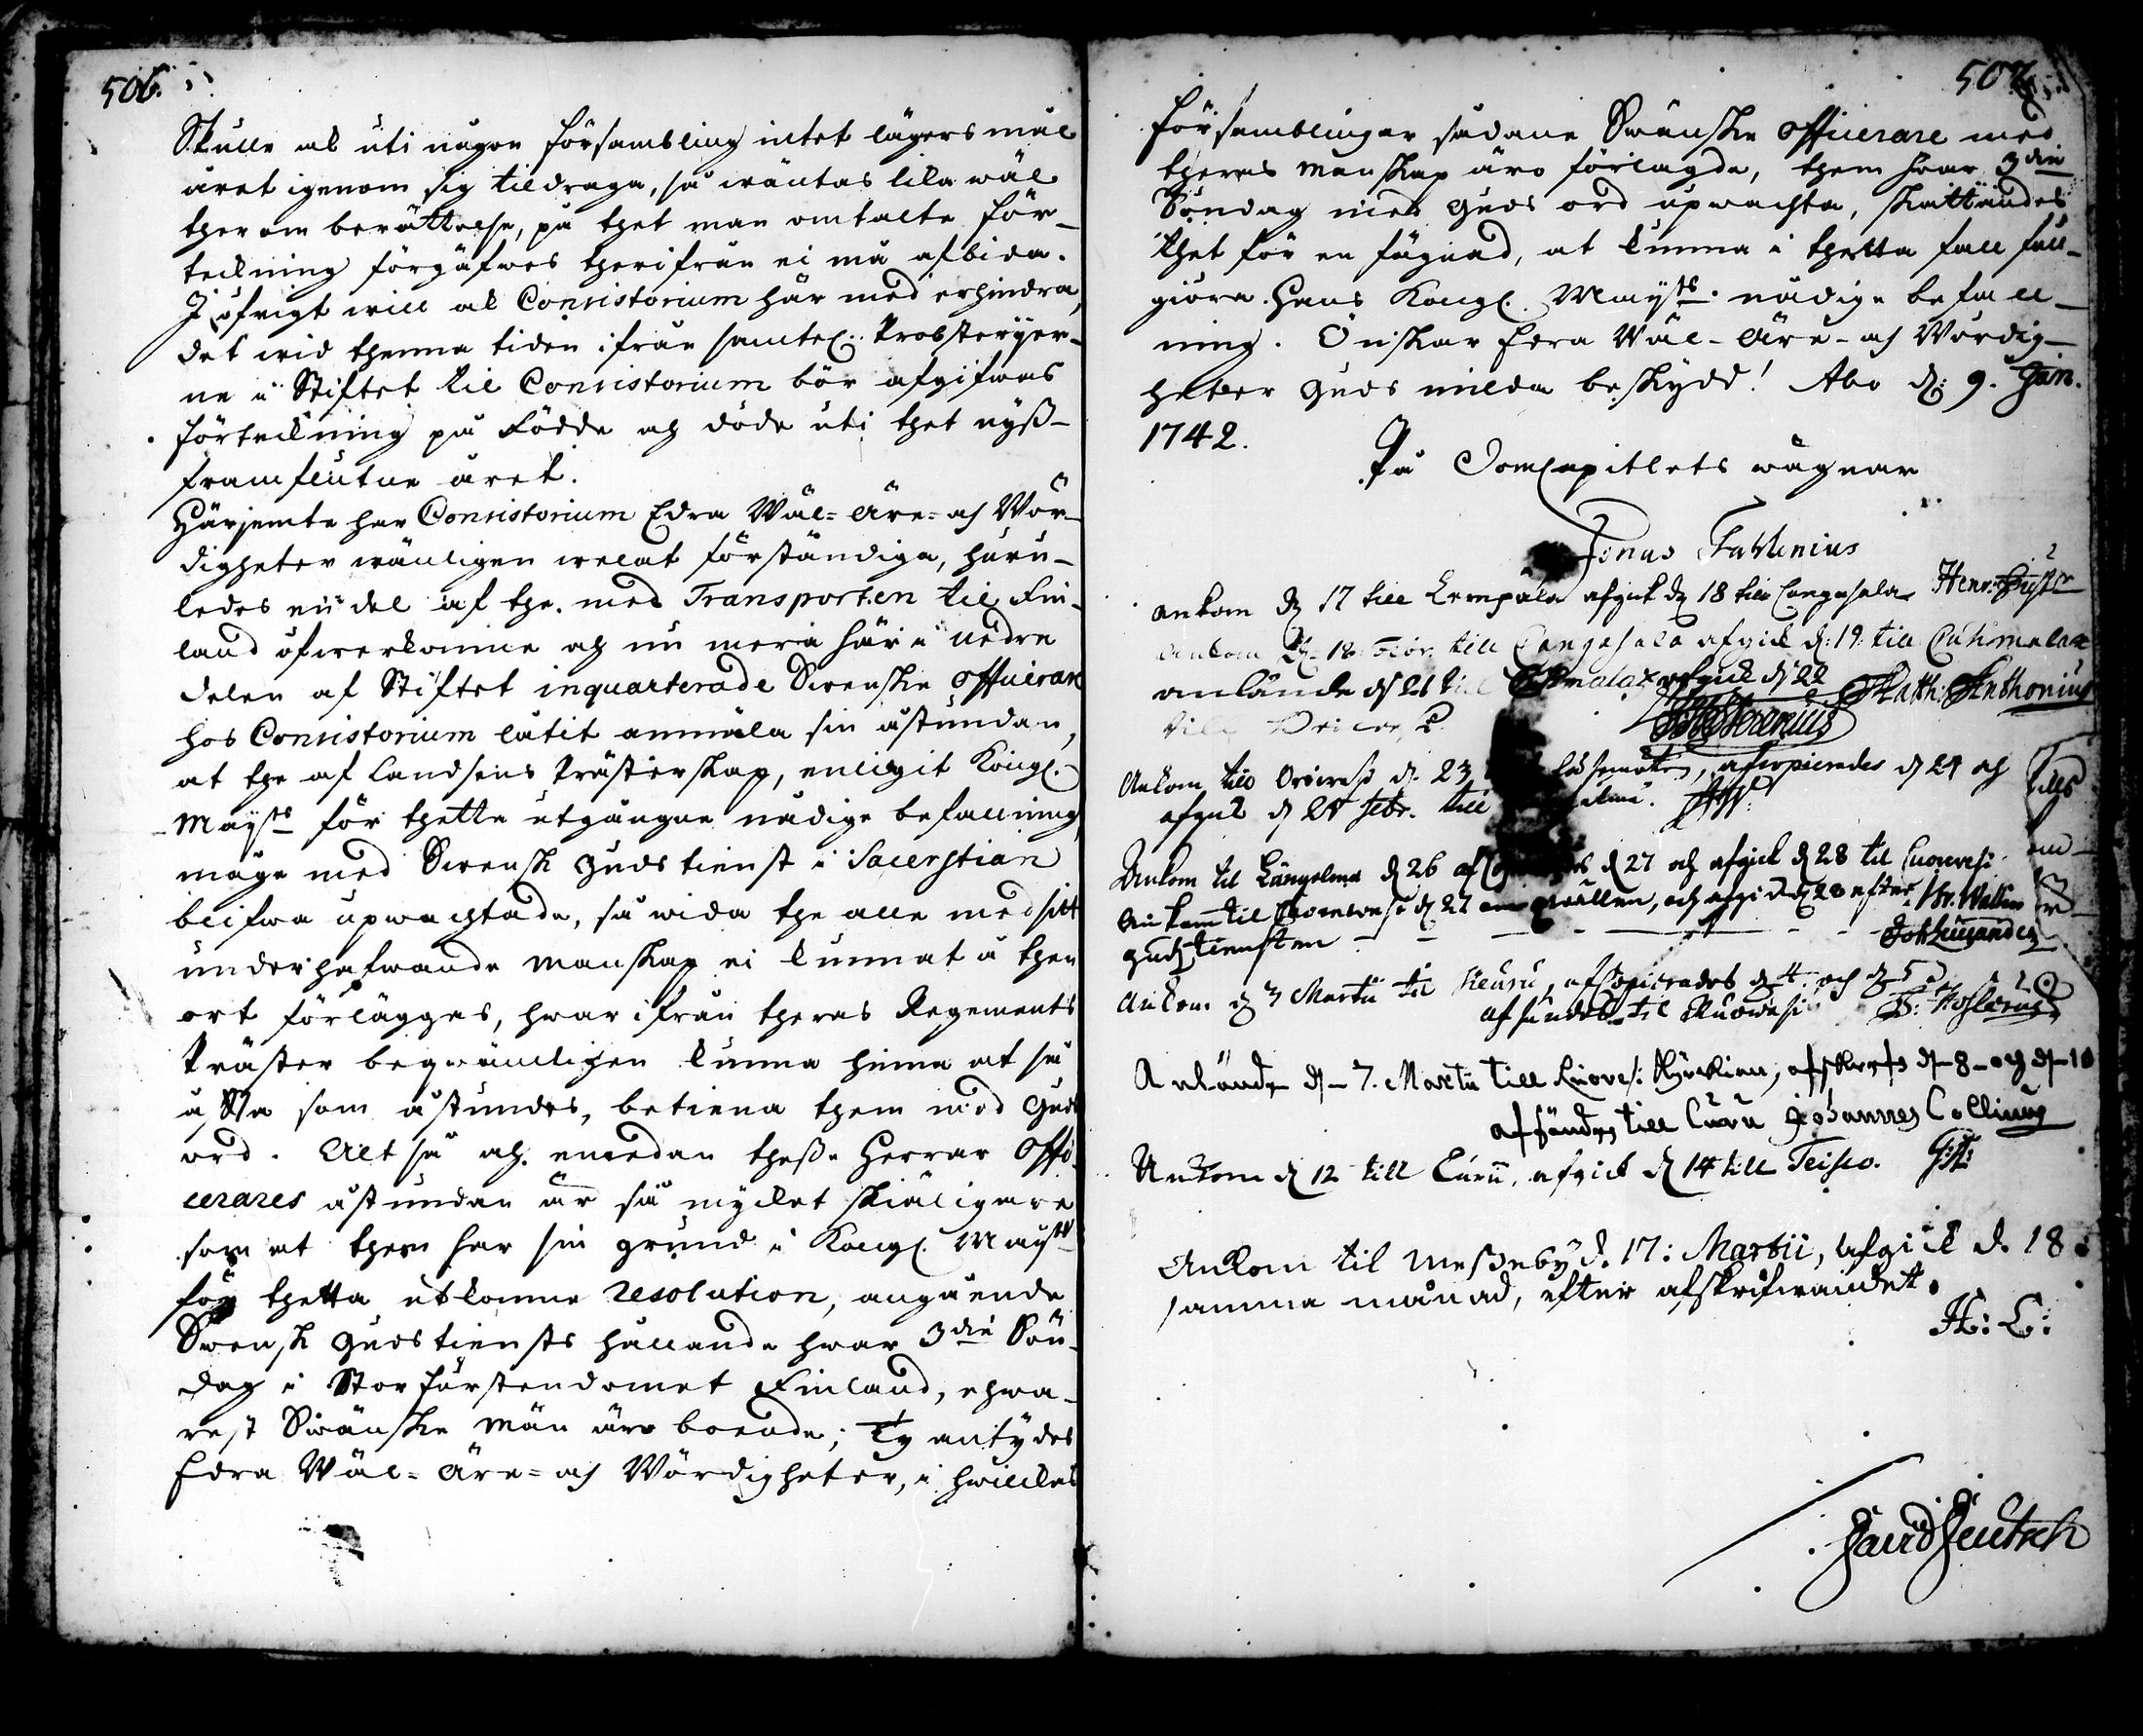 506.
Skulle ock uti någon försambling intet lägersmål
året igenom sig tildraga, så wäntas lika wäl
therom berättelse, på thet man omtalte för-
tekning förgäfwes therifrån ei må afbida.
I öfrigt will ock Consistorium här med erhindra,
det wid thenna tiden ifrån samtel. Probsterijer-
ne i Stiftet til Consistorium bör afgifwas
förtekning på Födde och döde uti thet nyß-
framflutne året.
Härjemte har Consistorium Edra Wäl- Äre- och Wör-
digheter wänligen welat förständiga, huru-
ledes en del af the med Transporten til Fin-
land öfwerkomne och nu mera här i nedre
delen af Stiftet inquarterade Swenske officerare
hos Consistorium låtit anmäla sin åstundan,
at the af landsens Prästerskap, enligit Kongl.
Mayts för thetta utgångne nådige befallning
måge med Swensk gudstienst i Sacerstian
blifwa upwachtade, så wida the alle med sitt
underhafwande manskap ei kunnat å then
ort förläggas, hwarifrån theras Regements
Präster beqwämligen kunna hinna at så
offta som åstundes, betiena them med Guds
ord. Altså och emedan theße Herrar Offi-
cerares åstundan är så mycket skiäligare
som at them har sin grund i Kongl. Mayts
för thetta utkomne resolution, angående
Swensk gudstiensts hållande hwar 3die Sön-
dag i Storfürstendömet Finland, ehwa-
rest Swänske män äro boende; Ty antydes
Edra Wäl- Äre- och Wördigheter, i hwilkas
507.
församblingar sådane Swänske officerare med
theras manskap äro förlagde, them hwar 3die
Söndag med Guds ord upwachta, skattandes
thet för en fägnad, at kunna i thetta fall full-
giöra Hans Kongl. Mayts. nådige befall-
ning. Önskar Edra Wäl- Äre- och Wördig-
heter Guds milda beskydd! Abo d. 9. Jan.
1742.
På Domcapitlets wägnar
Jonas Fahlenius
ankom d 17 till Lempälä afgick d 18 till Cangasala Henr.
Ankom d. 18 Febr. till Cangasala afgick d. 19. till Cuhmalax
Matth: Anthonius
anlände d 21 till Cuhmalax afgick d 22
till
Ankom till Oriwesi d. 23 afcopierades d 24 och
afgick d 24 febr. till
Ankom til Längelmä d 26 d 27 och afgick d 28 til Cuorevesi. Wallen
Ankom til Cuorewesi d 27 om qwällen, och afgick d 28 efter
gudztiensten Joh:
Ankom d 3 Martii til Keuru, afcopierades d 4. och d 5
afsändes til Ruowesi
Anlände d 7. Martii till Ruovesi Kyrckian, afskrefs d 8 och d 10
afsändes till Curu Johannes Collinus
Ankom d 12 till Curu, afgick d 14 till Teisco.
Ankom til Meßuby d. 17: Martii, afgick d. 18
samma månad, efter afskrifwandet.
H: C:
David Deutsch